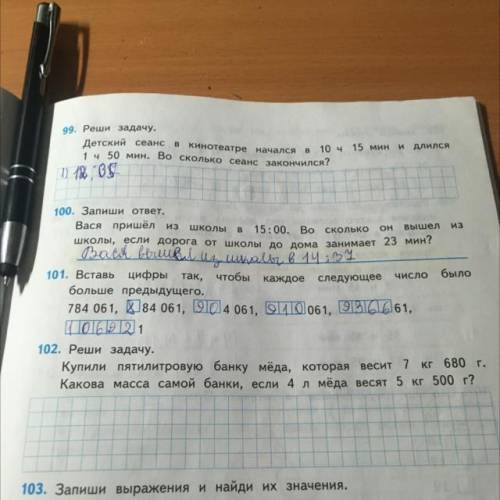 99. Реши задачу.
Детский сеанс в кинотеатре начался в 10 ч 15 мин и длился
1 ч 50 мин. Во сколько сеанс закончился?
1) 12:05
100. Запиши ответ.
Вася пришёл из школы в 15:00. Во сколько он вышел из
школы, если дорога от школы до дома занимает 23 мин?
Вася вышел из школы в 14:37
101. Вставь цифры так, чтобы каждое следующее число было
больше предыдущего.
784 061, 884 061, 904 061, 910 061, 936661,
106221
102. Реши задачу.
Купили пятилитровую банку мёда, которая весит 7 кг 680 г.
Какова масса самой банки, если 4 л мёда весят 5 кг 500 г?
103. Запиши выражения и найди их значения.